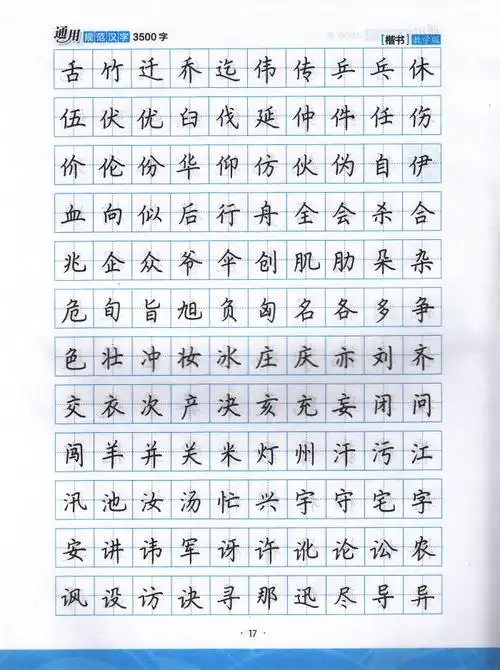 通用规范汉字3500字 [楷书]教学版
舌竹迁乔迄伟传乒乓休
伍伏优臼伐延仲件任伤
价伦份华仰仿伙伪自伊
血向似后行舟全会杀合
兆企众爷伞创肌肋朵杂
危旬旨旭负匈名各多争
色壮冲妆冰庄庆亦刘齐
交衣次产决亥充妄闭问
闯羊并关米灯州汗污江
汛池汝汤忙兴宇守宅字
安讲讳军讶许讹论讼农
讽设访诀寻那迅尽导异
· 17 ·